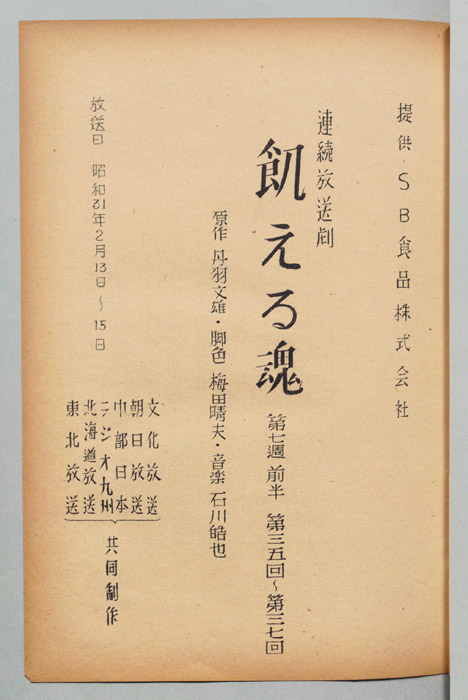 提供・SB食品株式会社
連続放送劇
飢える魂
第七週 前半 第三五回～第三七回
原作 丹羽文雄・脚色 梅田晴夫・音楽 石川皓也
放送日 昭和31年2月13日～15日
文化放送
朝日放送
中部日本
ラジオ九州
北海道放送
東北放送
共同制作